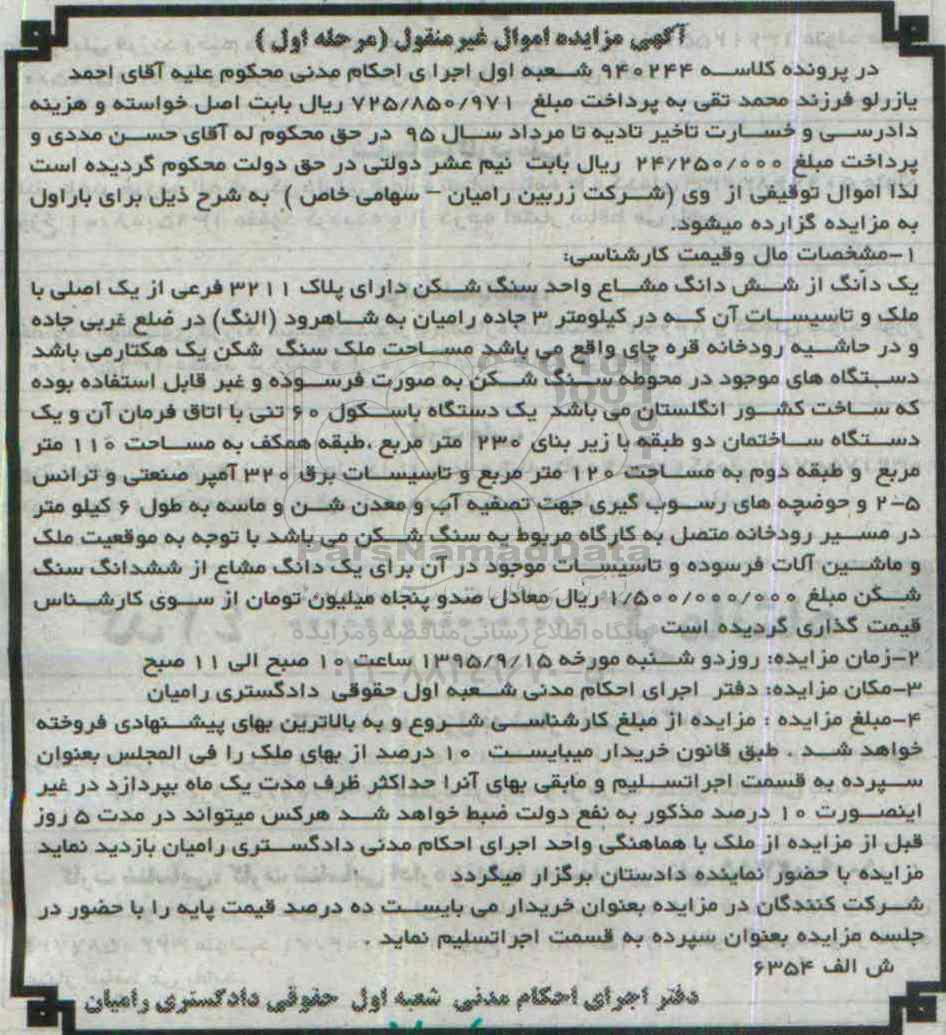 آگهی مزایده اموال غیرمنقول (مرحله اول)
در پرونده کلاسه ۹۴۰۲۴۴ شعبه اول اجرای احکام مدنی محکوم علیه آقای احمد
یازرلو فرزند محمد تقی به پرداخت مبلغ ۷۲۵/۸۵۰/۹۷۱ ریال بابت اصل خواسته و هزینه
دادرسی و خسارت تاخیر تادیه تا مرداد سال ۹۵ در حق محکوم له آقای حسن مددی و
پرداخت مبلغ ۲۴/۲۵۰/۰۰۰ ریال بابت نیم عشر دولتی در حق دولت محکوم گردیده است
لذا اموال توقیفی از وی (شرکت زربین رامیان - سهامی خاص ) به شرح ذیل برای باراول
به مزایده گزارده میشود.
۱-مشخصات مال وقیمت کارشناسی:
یک دانگ از شش دانگ مشاع واحد سنگ شکن دارای پلاک ۳۲۱۱ فرعی از یک اصلی با
ملک و تاسیسات آن که در کیلومتر ۳ جاده رامیان به شاهرود (النگ) در ضلع غربی جاده
و در حاشیه رودخانه قره چای واقع می باشد مساحت ملک سنگ شکن یک هکتارمی باشد
دستگاه های موجود در محوطه سنگ شکن به صورت فرسوده و غیر قابل استفاده بوده
که ساخت کشور انگلستان می باشد یک دستگاه باسکول ۶۰ تنی با اتاق فرمان آن و یک
دستگاه ساختمان دو طبقه با زیر بنای ۲۳۰ متر مربع ،طبقه همکف به مساحت ۱۱۰ متر
مربع و طبقه دوم به مساحت ۱۲۰ متر مربع و تاسیسات برق ۳۲۰ آمپر صنعتی و ترانس
۲-۵ و حوضچه های رسوب گیری جهت تصفیه آب و معدن شن و ماسه به طول ۶ کیلو متر
در مسیر رودخانه متصل به کارگاه مربوط به سنگ شکن می باشد با توجه به موقعیت ملک
و ماشین آلات فرسوده و تاسیسات موجود در آن برای یک دانگ مشاع از ششدانگ سنگ
شکن مبلغ ۱/۵۰۰/۰۰۰/۰۰۰ ریال معادل صدو پنجاه میلیون تومان از سوی کارشناس
قیمت گذاری گردیده است
۲-زمان مزایده: روزدو شنبه مورخه ۱۳۹۵/۹/۱۵ ساعت ۱۰ صبح الی ۱۱ صبح
۳-مکان مزایده: دفتر اجرای احکام مدنی شعبه اول حقوقی دادگستری رامیان
۴-مبلغ مزایده : مزایده از مبلغ کارشناسی شروع و به بالاترین بهای پیشنهادی فروخته
خواهد شد . طبق قانون خریدار میبایست ۱۰ درصد از بهای ملک را فی المجلس بعنوان
سپرده به قسمت اجراتسلیم و مابقی بهای آنرا حداکثر ظرف مدت یک ماه بپردازد در غیر
اینصورت ۱۰ درصد مذکور به نفع دولت ضبط خواهد شد هرکس میتواند در مدت ۵ روز
قبل از مزایده از ملک با هماهنگی واحد اجرای احکام مدنی دادگستری رامیان بازدید نماید
مزایده با حضور نماینده دادستان برگزار میگردد
شرکت کنندگان در مزایده بعنوان خریدار می بایست ده درصد قیمت پایه را با حضور در
جلسه مزایده بعنوان سپرده به قسمت اجراتسلیم نماید
ش الف ۶۳۵۴
دفتر اجرای احکام مدنی شعبه اول حقوقی دادگستری رامیان
ParsNamadData
پایگاه اطلاع رسانی مناقصه و مزایده